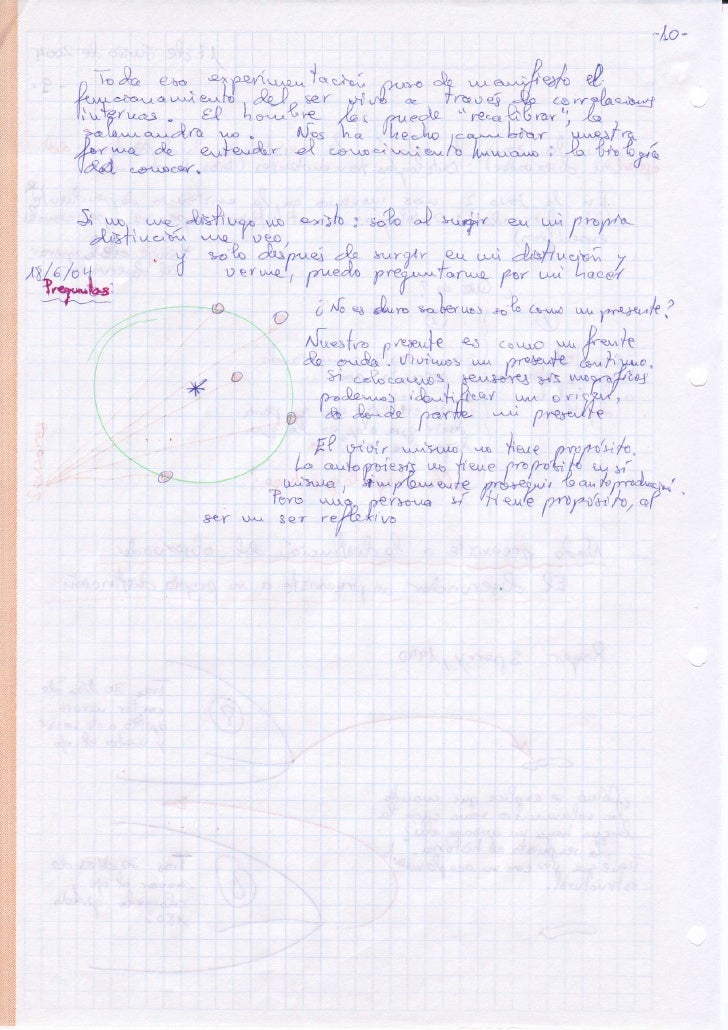 -10-
Toda esa experimentación puso de manifiesto el
funcionamiento del ser vivo a través de correlaciones
internas. El hombre las puede "recalibrar", la
salamandra no. Nos ha hecho cambiar nuestra
forma de entender el conocimiento humano: la biología
del conocer.
Si no me distingo no existo: solo al surgir en mi propia
distinción me veo,
y solo después de surgir en mi distinción y
verme, puedo preguntarme por mi hacer
18/6/04
Preguntas:
¿No es duro sabernos solo como un presente?
Nuestro presente es como un frente
de onda. Vivimos un presente continuo.
Si colocamos sensores sismográficos
podemos identificar un origen,
de donde parte mi presente
El vivir mismo no tiene propósito.
La autopoiesis no tiene propósito en sí
misma, simplemente proseguir la autoproducción.
Pero una persona sí tiene propósito, al
ser un ser reflexivo